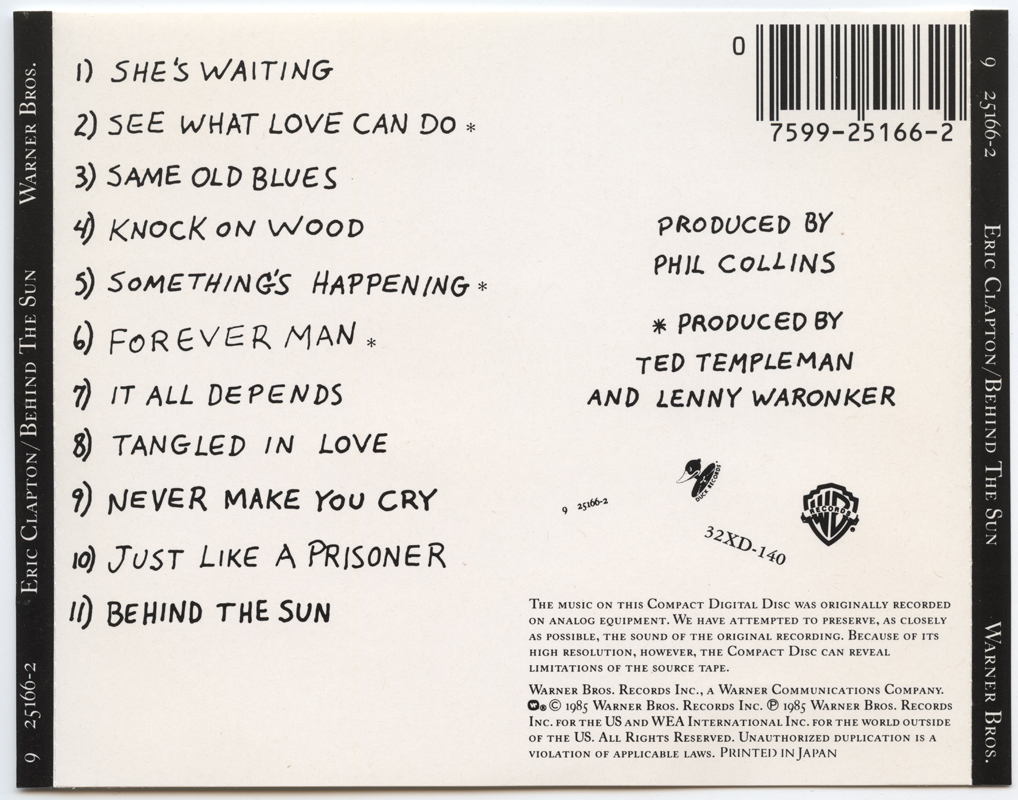 Warner Bros.
Eric Clapton/Behind The Sun
9 25166-2
1) SHE'S WAITING
2) SEE WHAT LOVE CAN DO *
3) SAME OLD BLUES
4) KNOCK ON WOOD
5) SOMETHING'S HAPPENING *
6) FOREVER MAN *
7) IT ALL DEPENDS
8) TANGLED IN LOVE
9) NEVER MAKE YOU CRY
10) JUST LIKE A PRISONER
11) BEHIND THE SUN
0
7599-25166-2
PRODUCED BY
PHIL COLLINS
* PRODUCED BY
TED TEMPLEMAN
AND LENNY WARONKER
DUCK RECORDS
9 25166-2
RECORDS
32XD-140
The music on this Compact Digital Disc was originally recorded
on analog equipment. We have attempted to preserve, as closely
as possible, the sound of the original recording. Because of its
high resolution, however, the Compact Disc can reveal
limitations of the source tape.
Warner Bros. Records Inc., a Warner Communications Company.
® © 1985 Warner Bros. Records Inc. ℗ 1985 Warner Bros. Records
Inc. for the US and WEA International Inc. for the world outside
of the US. All Rights Reserved. Unauthorized duplication is a
violation of applicable laws. PRINTED IN JAPAN
9 25166-2
Eric Clapton/Behind The Sun
Warner Bros.